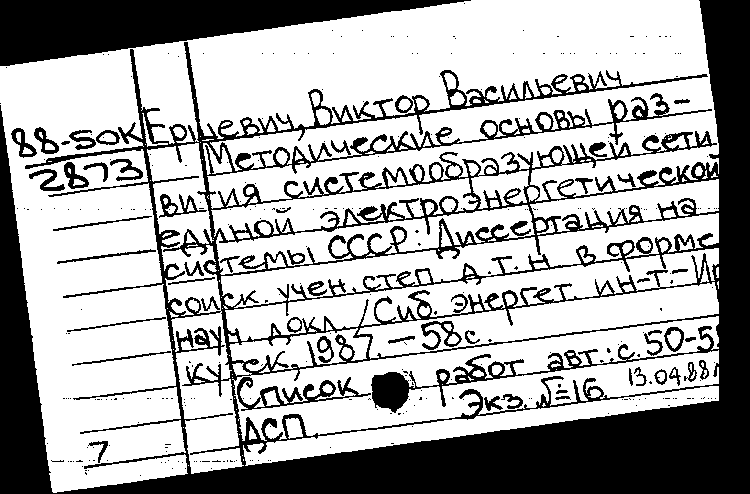 88-50К Ершевич, Виктор Васильевич.
2873 Методические основы раз-
вития системообразующей сети
единой электроэнергетической
системы СССР: Диссертация на
соиск. учен. степ. д.т.н в форме
науч. докл. /Сиб. энергет. ин-т.-Ир
кутск, 1987. - 58с.
Список работ авт.: с. 50-5
Экз. №16. 13.04.88г
ДСП.
7